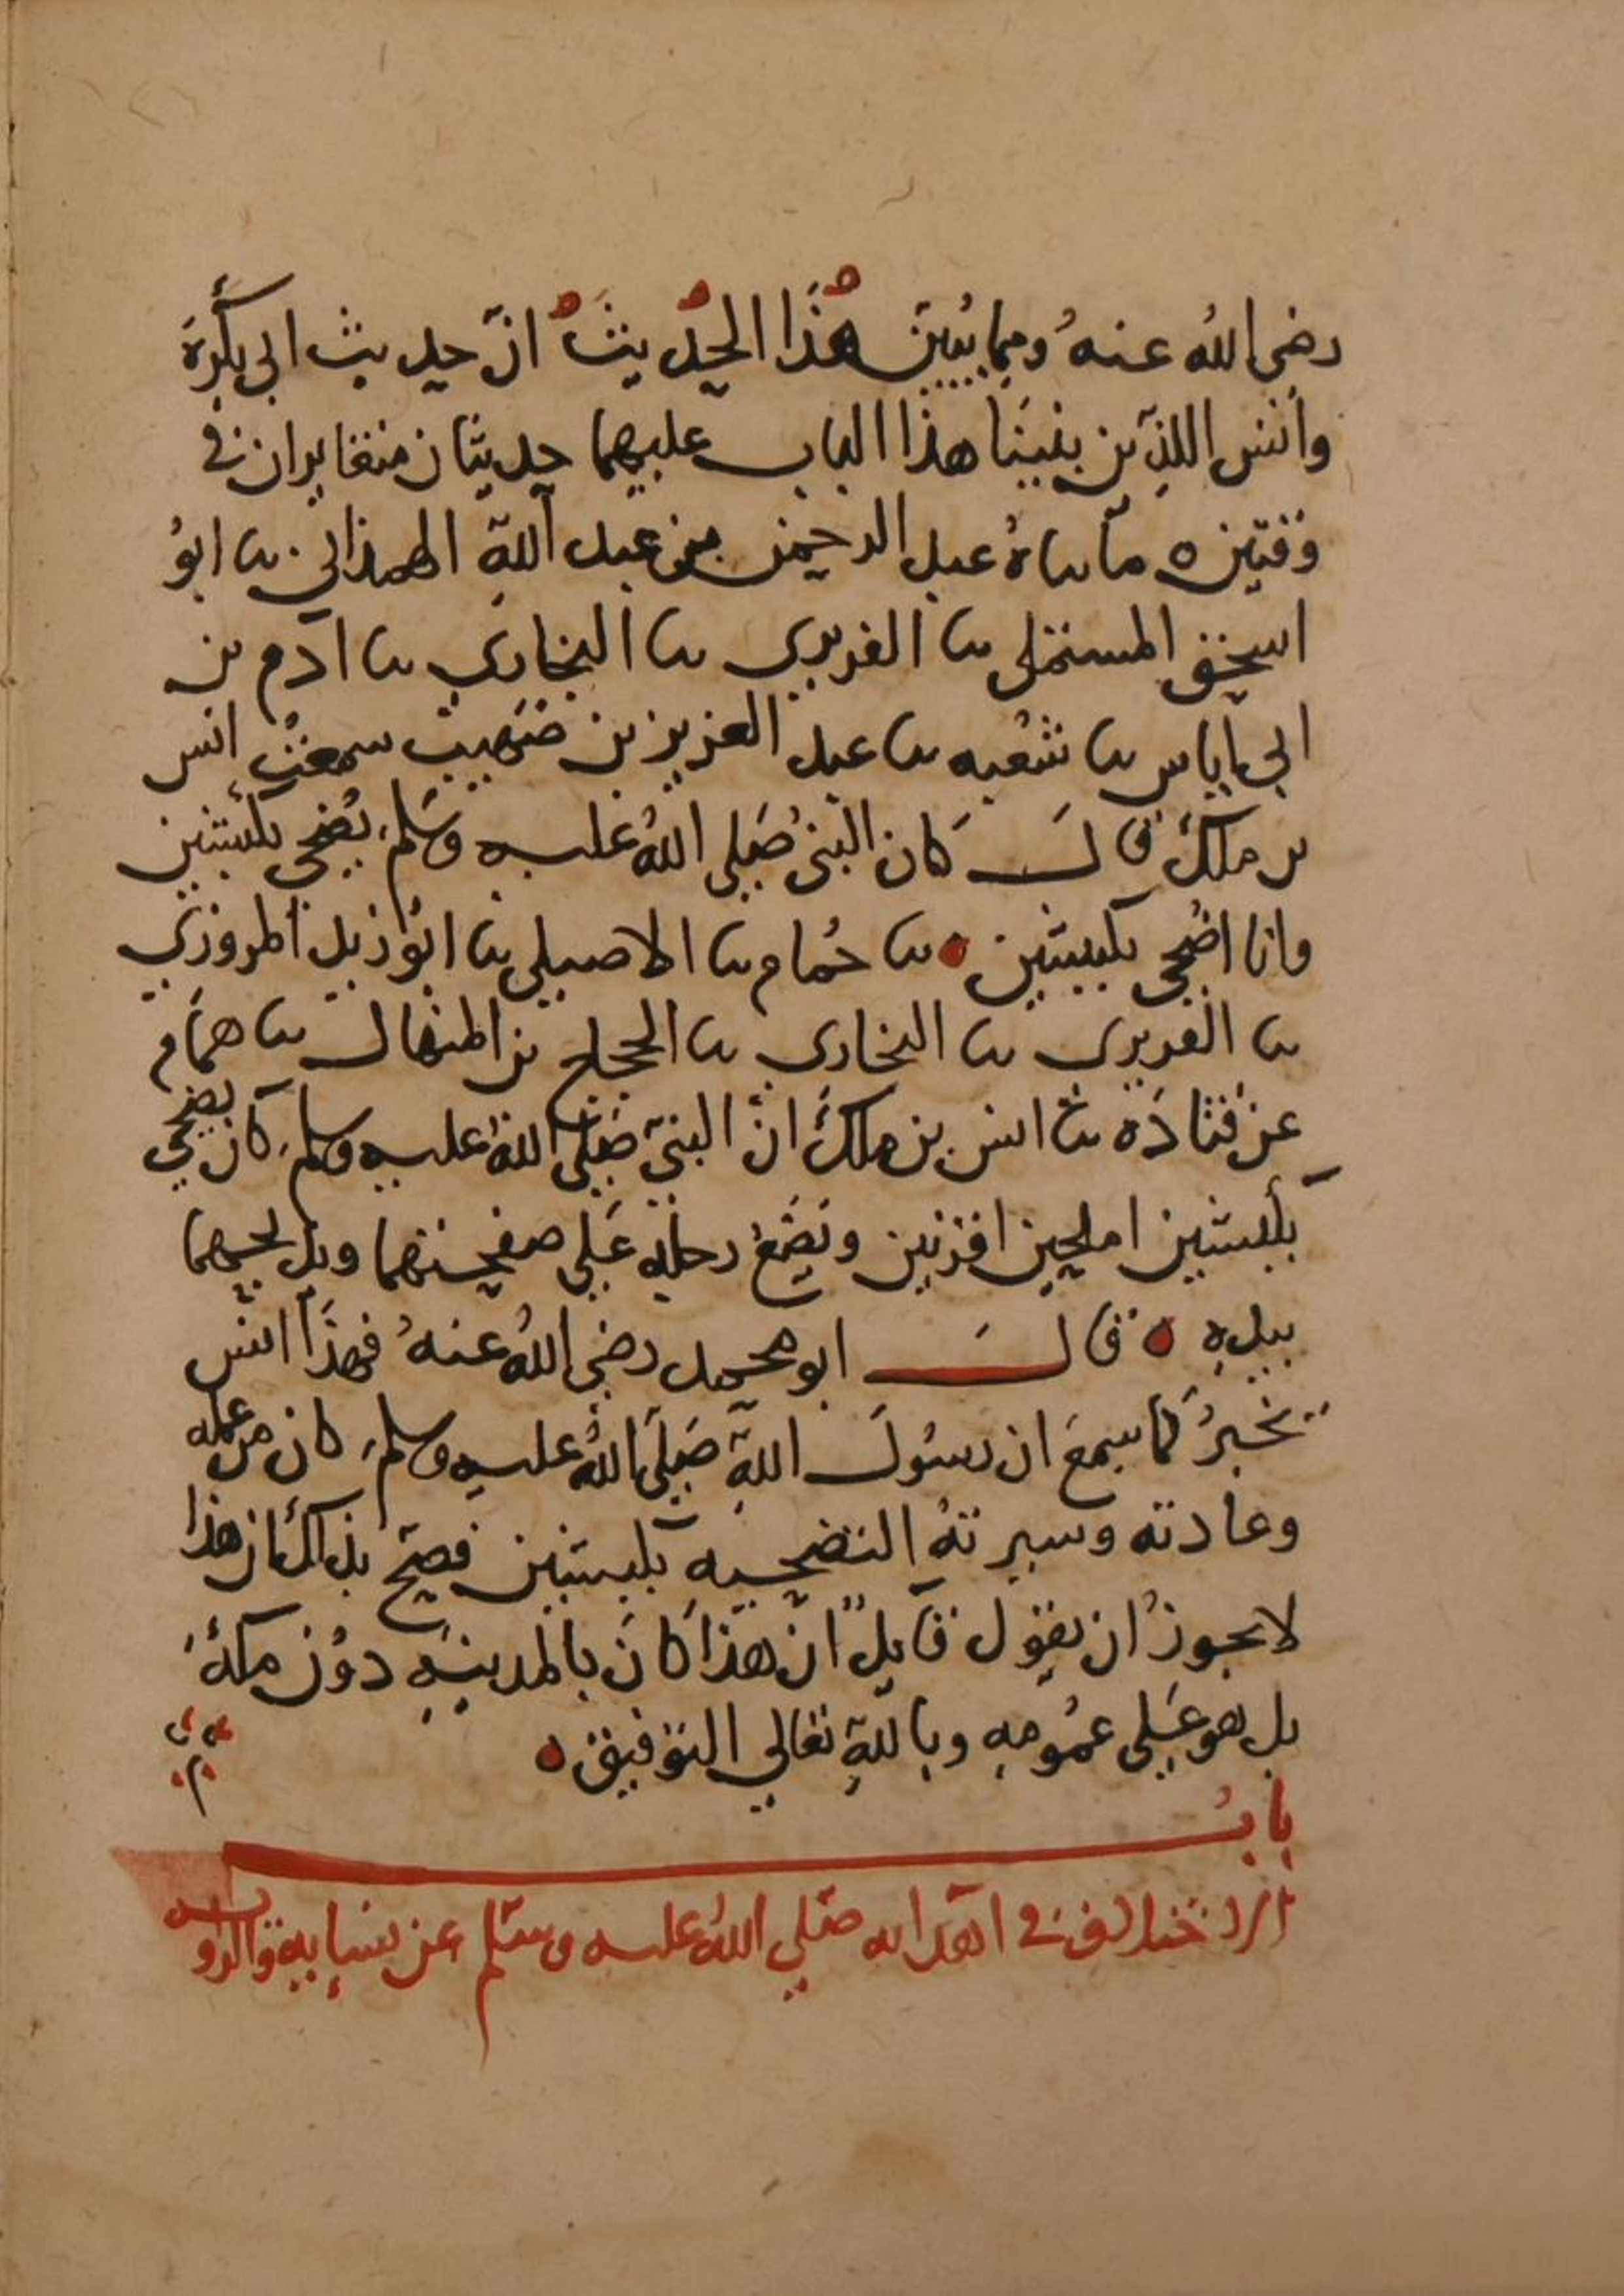 رضي الله عنه ومما يبين هذا الحديث ان حديث ابي بكرة
وانس اللذين بنينا هذا الباب عليهما حديثان متغايران في
وقتين ه ما ساه عبد الرحمن بن عبد الله الهمذاني سا ابو
اسحق المستملي سا الفربري سا البخاري سا ادم بن
ابي اياس سا شعبه سا عبد العزيز بن صهيب سمعت انس
بن ملك قال كان النبي صلى الله عليه وسلم يضحي بكبشين
وانا اضحي بكبشين ه سا حمام سا الاصيلي سا ابو زيد المروزي
سا الفربري سا البخاري سا الحجاج بن المنهال سا همام
عن قتاده سا انس بن ملك ان النبي صلى الله عليه وسلم كان يضحي
بكبشين املحين اقرنين ويضع رجله على صفحتهما ويذبحهما
بيده ه قال ابو محمد رضي الله عنه فهذا انس
يخبر كما سمع ان رسول الله صلى الله عليه وسلم كان من عمله
وعادته وسيرته التضحيه بكبشين فصح بذلك ان هذا
لا يجوز ان يقول قايل ان هذا كان بالمدينه دون مكة
بل هو على عمومه وبالله تعالى التوفيق ه
باب
الاختلاف في اهدايه صلى الله عليه وسلم عن نسايه